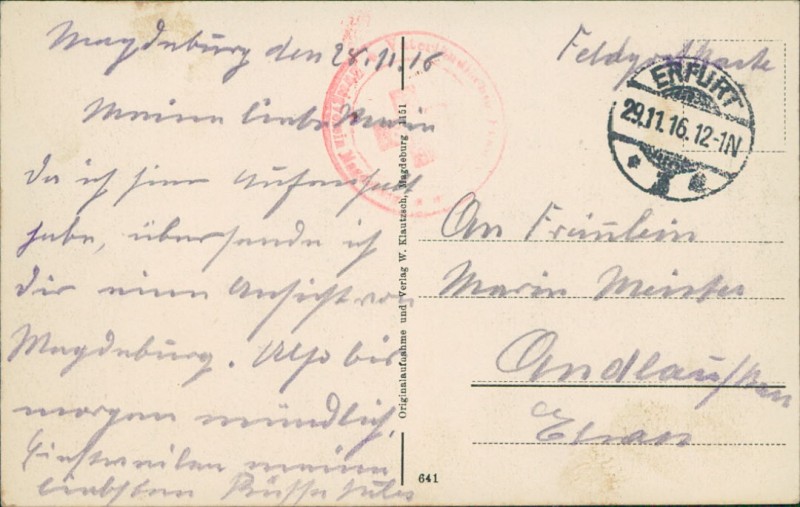 Magdeburg den 28.11.16
Meine liebe Marie
da ich hier Aufenthalt
habe, übersende ich
dir eine Ansicht von
Magdeburg. Also bis
morgen mündlich,
Einstweilen meine
liebsten Küsse Jules
Feldpostkarte
ERFURT
29.11.16.12-1N
An Fräulein
Marie Meister
Andlau
Elsass
Originalaufnahme und Verlag W. Klautzsch, Magdeburg 1151
641